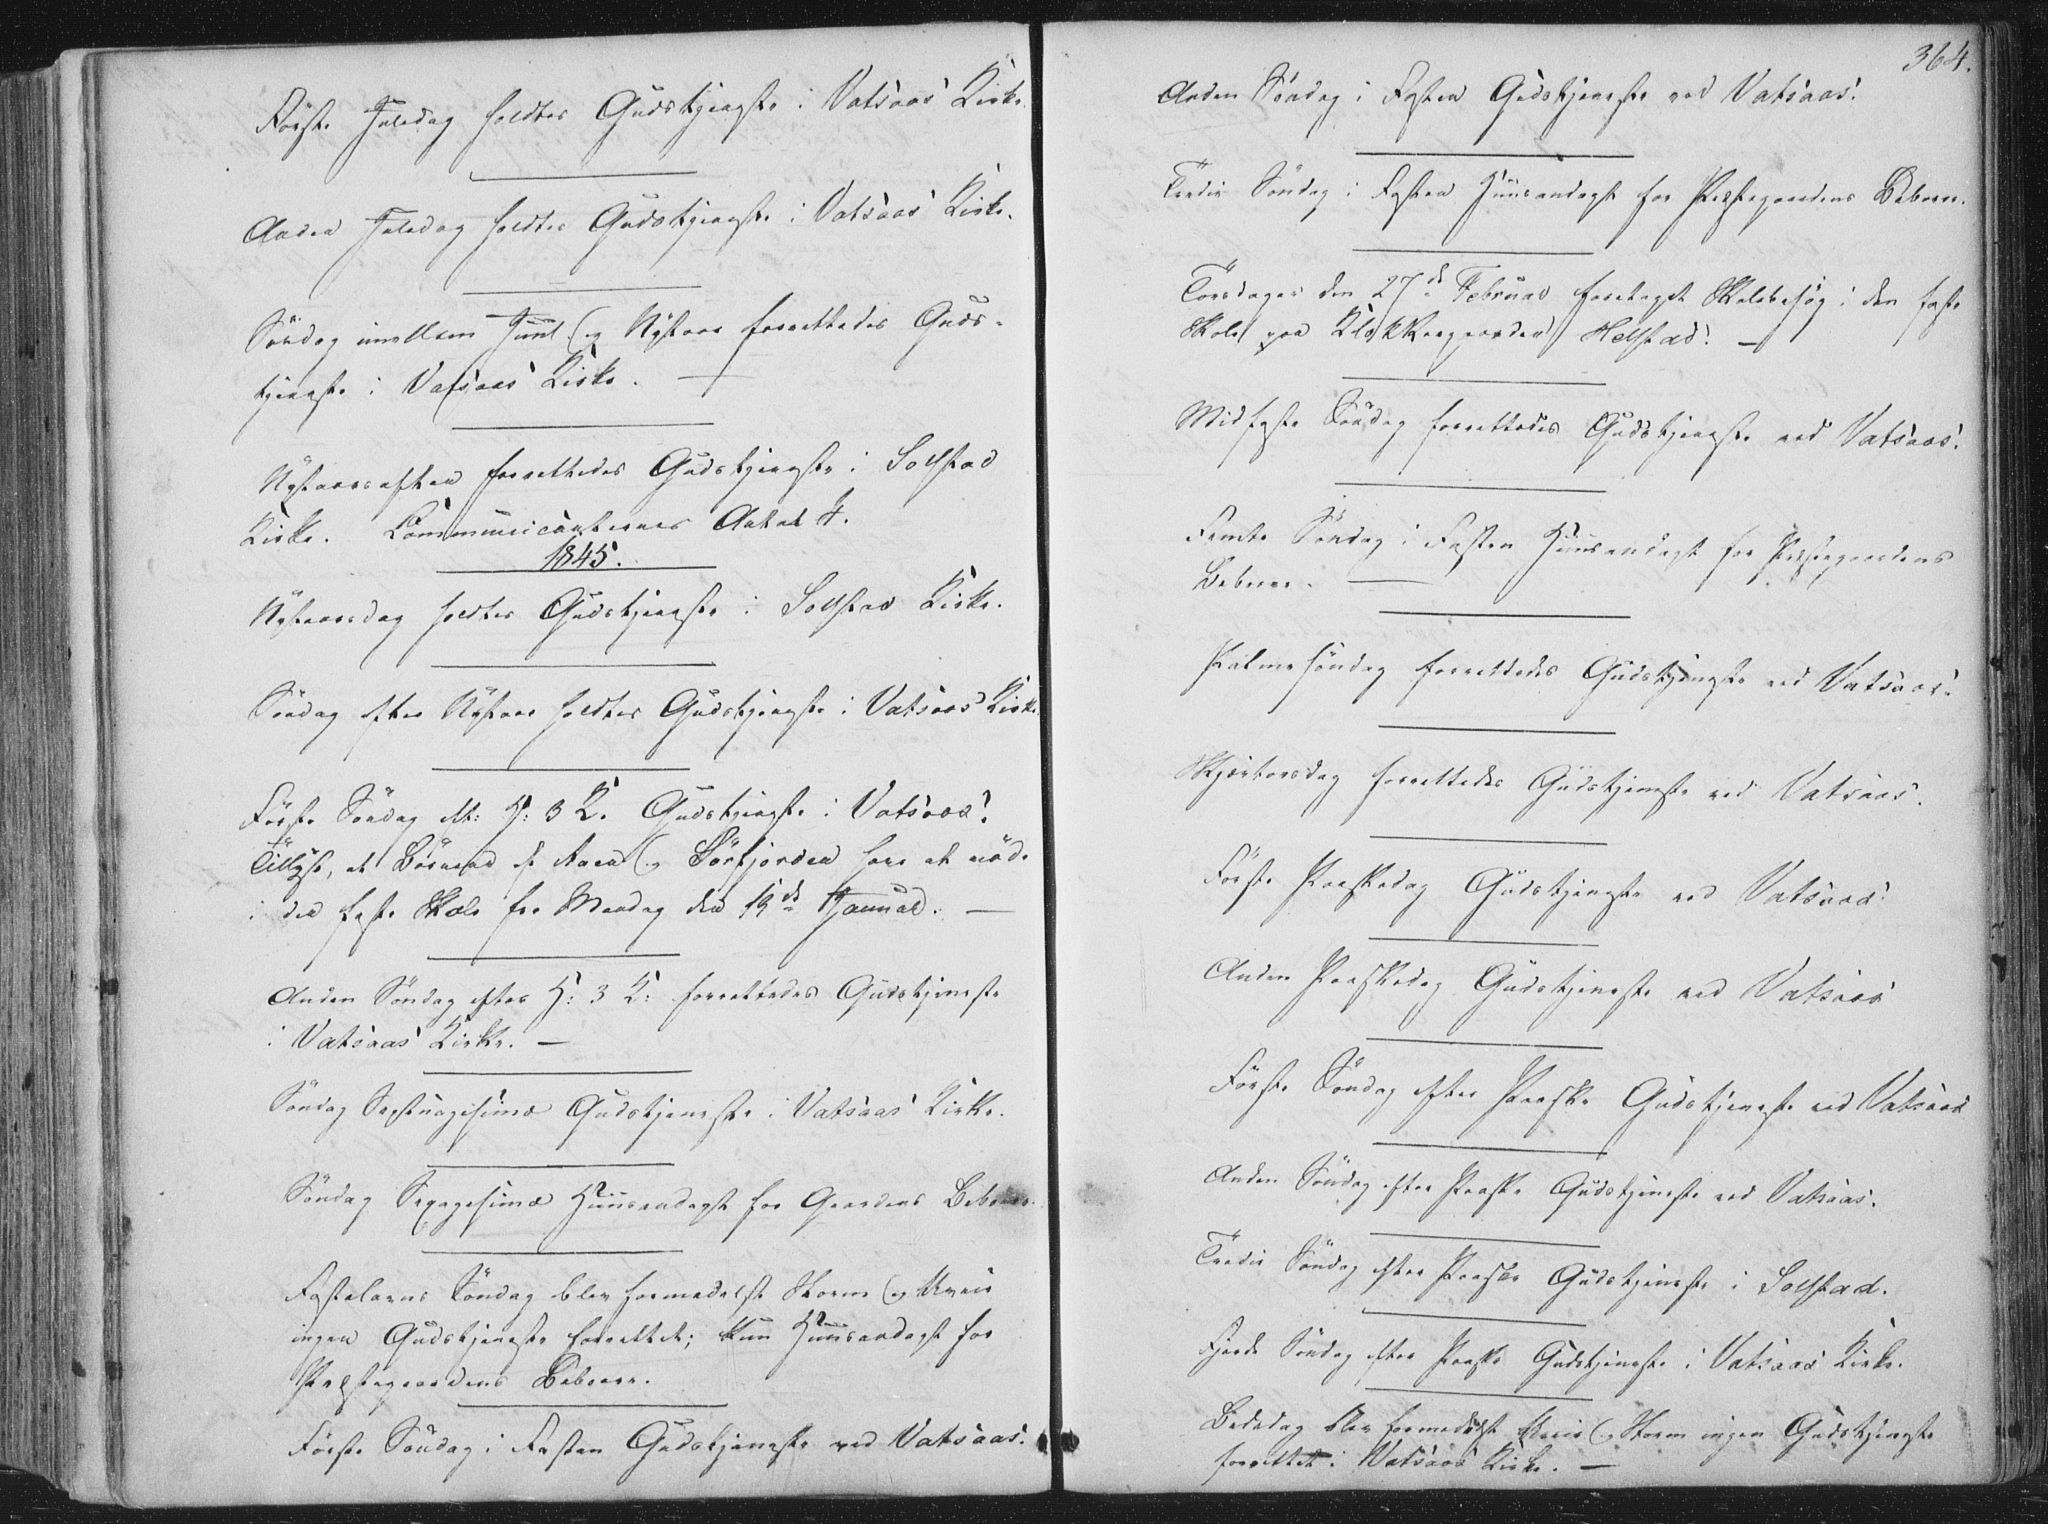 Første Juledag holdtes Gudstjeneste i Vatsaas Kirke.
Anden Juledag holdtes Gudstjeneste i Vatsaas Kirke.
Søndag imellem Juul og Nytaar forrettedes Guds-
tjeneste i Vatsaas Kirke. —
Nytaarsaften forrettedes Gudstjeneste i Solstad
Kirke. Communicanternes Antal 4.
1845.
Nytaarsdag holdtes Gudstjeneste i Solstad Kirke.
Søndag efter Nytaar holdtes Gudstjeneste i Vatsaas Kirke.
Første Søndag eft: H: 3 K. Gudstjeneste i Vatsaas.
Tillyst, at Børnene af Aaen og Sørfjorden have at møde
i den faste Skole fra Mandag den 19de Januar. —
Anden Søndag efter H: 3 K: forrettedes Gudstjeneste
i Vatsaas Kirke. —
Søndag Septuagesima Gudstjeneste i Vatsaas Kirke.
Søndag Sexagesima Huusandagt for Gaardens Beboere.
Fastelavns Søndag blev formedelst Storm og Uveir
ingen Gudstjeneste forrettet; kun Huusandagt for
Præstegaardens Beboere.
Første Søndag i Fasten Gudstjeneste ved Vatsaas.
364.
Anden Søndag i Fasten Gudstjeneste ved Vatsaas.
Tredie Søndag i Fasten Huusandagt for Præstegaardens Beboere.
Torsdagen den 27de Februar foretaget Skolebesøg i den faste
Skole paa Klokkergaarden Helstad. —
Midfaste Søndag forrettedes Gudstjeneste ved Vatsaas.
Femte Søndag i Fasten Huusandagt for Præstegaardens
Beboere. —
Palmesøndag forrettedes Gudstjeneste ved Vatsaas.
Skjærtorsdag forrettedes Gudstjeneste ved Vatsaas.
Første Paaskedag Gudstjeneste ved Vatsaas.
Anden Paaskedag Gudstjeneste ved Vatsaas
Første Søndag efter Paaske Gudstjeneste ved Vatsaas
Anden Søndag efter Paaske Gudstjeneste ved Vatsaas.
Tredie Søndag efter Paaske Gudstjeneste i Solstad.
Fjerde Søndag efter Paaske Gudstjeneste i Vatsaas Kirke.
Bededag blev formedelst Uveir og Storm ingen Gudstjeneste
forrettet i Vatsaas Kirke. —